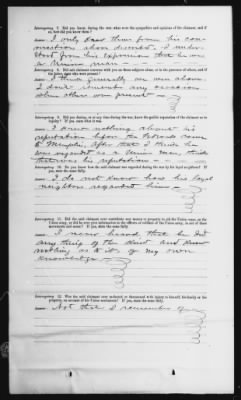 Interrogatory 7. Did you know, during the war, what were the sympathies and opinions of the claimant, and if so, how did you know them?
Ans. I only knew them from his con-
versation above deposed. I under-
stood from his expression that he was
a Union man.
Interrogatory 8. Did said claimant converse with you on those subjects alone or in the presence of others, and if the latter, upon what occasion?
Ans. I think generally we were alone.
I don't remember any occasion
when others were present
Interrogatory 9. Did you know, during, or at any time during the war, know the public reputation of the claimant as to loyalty? If yea, state what it was.
Ans. I knew nothing about his
reputation before the Federals came
to Memphis. After that I think he
was regarded as a Union man, think
that was his reputation
Interrogatory 10. Do you know how the said claimant was regarded during the war by the loyal neighbors? If yea, state the same fully.
Ans. I do not know how his loyal
neighbors regarded him
Interrogatory 11. Did the said claimant ever contribute any money or property to aid the Union cause, or the Union army, or did he ever give information to the officers or soldiers of the Union army, in aid of their movements and cause? If yea, state the same fully.
Ans. I never heard that he did
any thing of the kind and know
nothing as to it of my own
knowledge
Interrogatory 12. Was the said claimant ever molested, or threatened with injury to himself, his family or his property, on account of his Union sentiments? If yea, state the same fully.
Ans. Not that I remember of